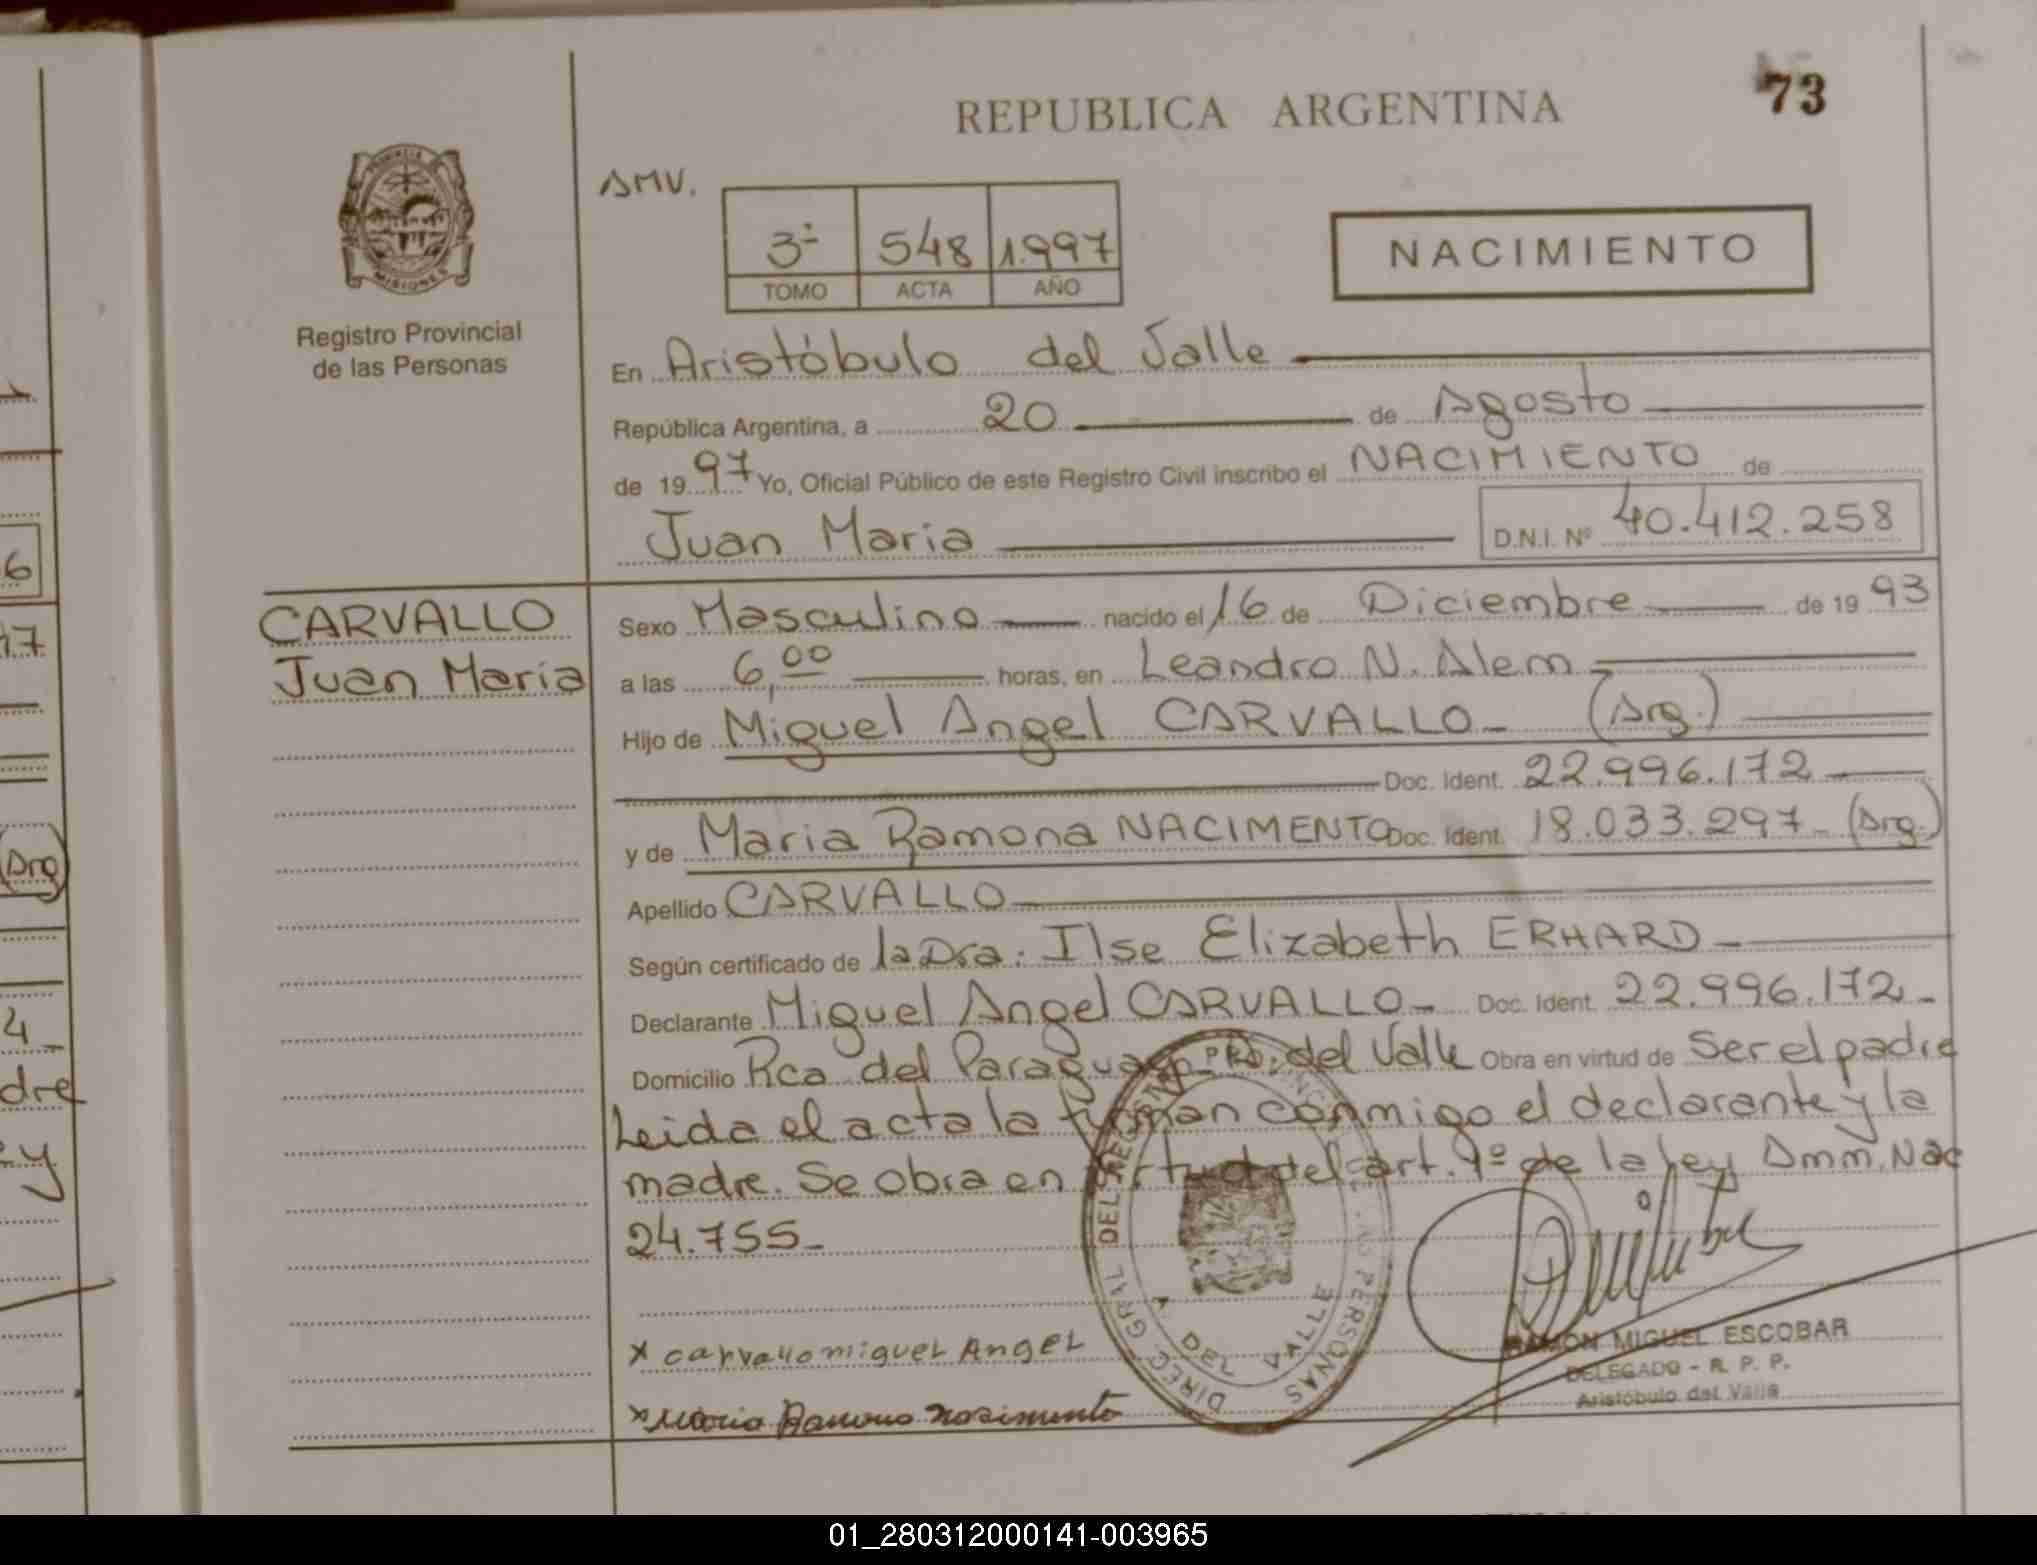 REPUBLICA ARGENTINA
73
PROVINCIA DE
MISIONES
Registro Provincial
de las Personas
AMV.
3º 548 1.997
TOMO ACTA AÑO
NACIMIENTO
En Aristóbulo del Valle
República Argentina, a 20 de Agosto
de 1997 Yo, Oficial Público de este Registro Civil inscribo el NACIMIENTO de
Juan Maria D.N.I. Nº 40.412.258
CARVALLO
Juan Maria
Sexo Masculino nacido el 16 de Diciembre de 1993
a las 6,00 horas, en Leandro N. Alem
Hijo de Miguel Angel CARVALLO- (Arg.)
Doc. Ident. 22.996.172
y de Maria Ramona NACIMENTO Doc. Ident. 18.033.297- (Arg.)
Apellido CARVALLO
Según certificado de la Dra: Ilse Elizabeth ERHARD-
Declarante Miguel Angel CARVALLO- Doc. Ident. 22.996.172-
Domicilio Pca del Paraguay- del Valle Obra en virtud de Ser el padre
Leida el acta la firman conmigo el declarante y la
madre. Se obra en virtud del art. 9º de la Ley Amm. Nac
24.755-
x carvallo miguel Angel
x Maria Ramona nacimento
DIREC. GRAL DEL REG. PROVINCIAL PERSONAS
A. DEL VALLE
RAMON MIGUEL ESCOBAR
DELEGADO - R. P. P.
Aristóbulo del Valle
6
17
(Arg)
4-
dre
y
01_280312000141-003965